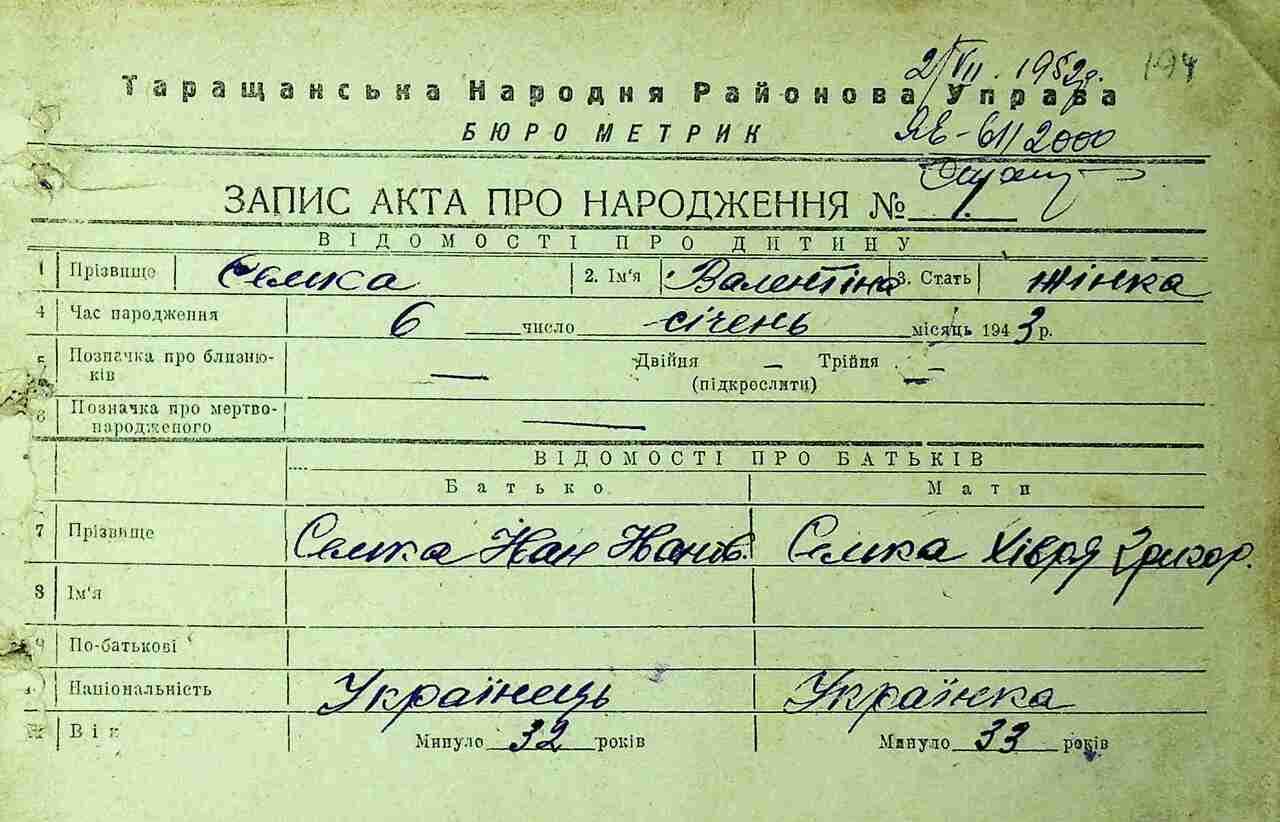 2/VII. 1952р. 194
Таращанська Народня Районова Управа
БЮРО МЕТРИК ЯЕ-6112000
ЗАПИС АКТА ПРО НАРОДЖЕННЯ № 1.
ВІДОМОСТІ ПРО ДИТИНУ
1 Прізвище Семка 2. Ім'я Валентіна 3. Стать жінка
4 Час народження 6 число січень місяць 1943 р.
5 Позначка про близню- — Двійня — Трійня —
ків (підкреслити)
6 Позначка про мертво-
народженого —
ВІДОМОСТІ ПРО БАТЬКІВ
Батько Мати
7 Прізвище Семка Иван Иванов. Семка Хівря Григор.
8 Ім'я
9 По-батькові
Національність Українець Українка
Вік Минуло 32 років Минуло 33 років